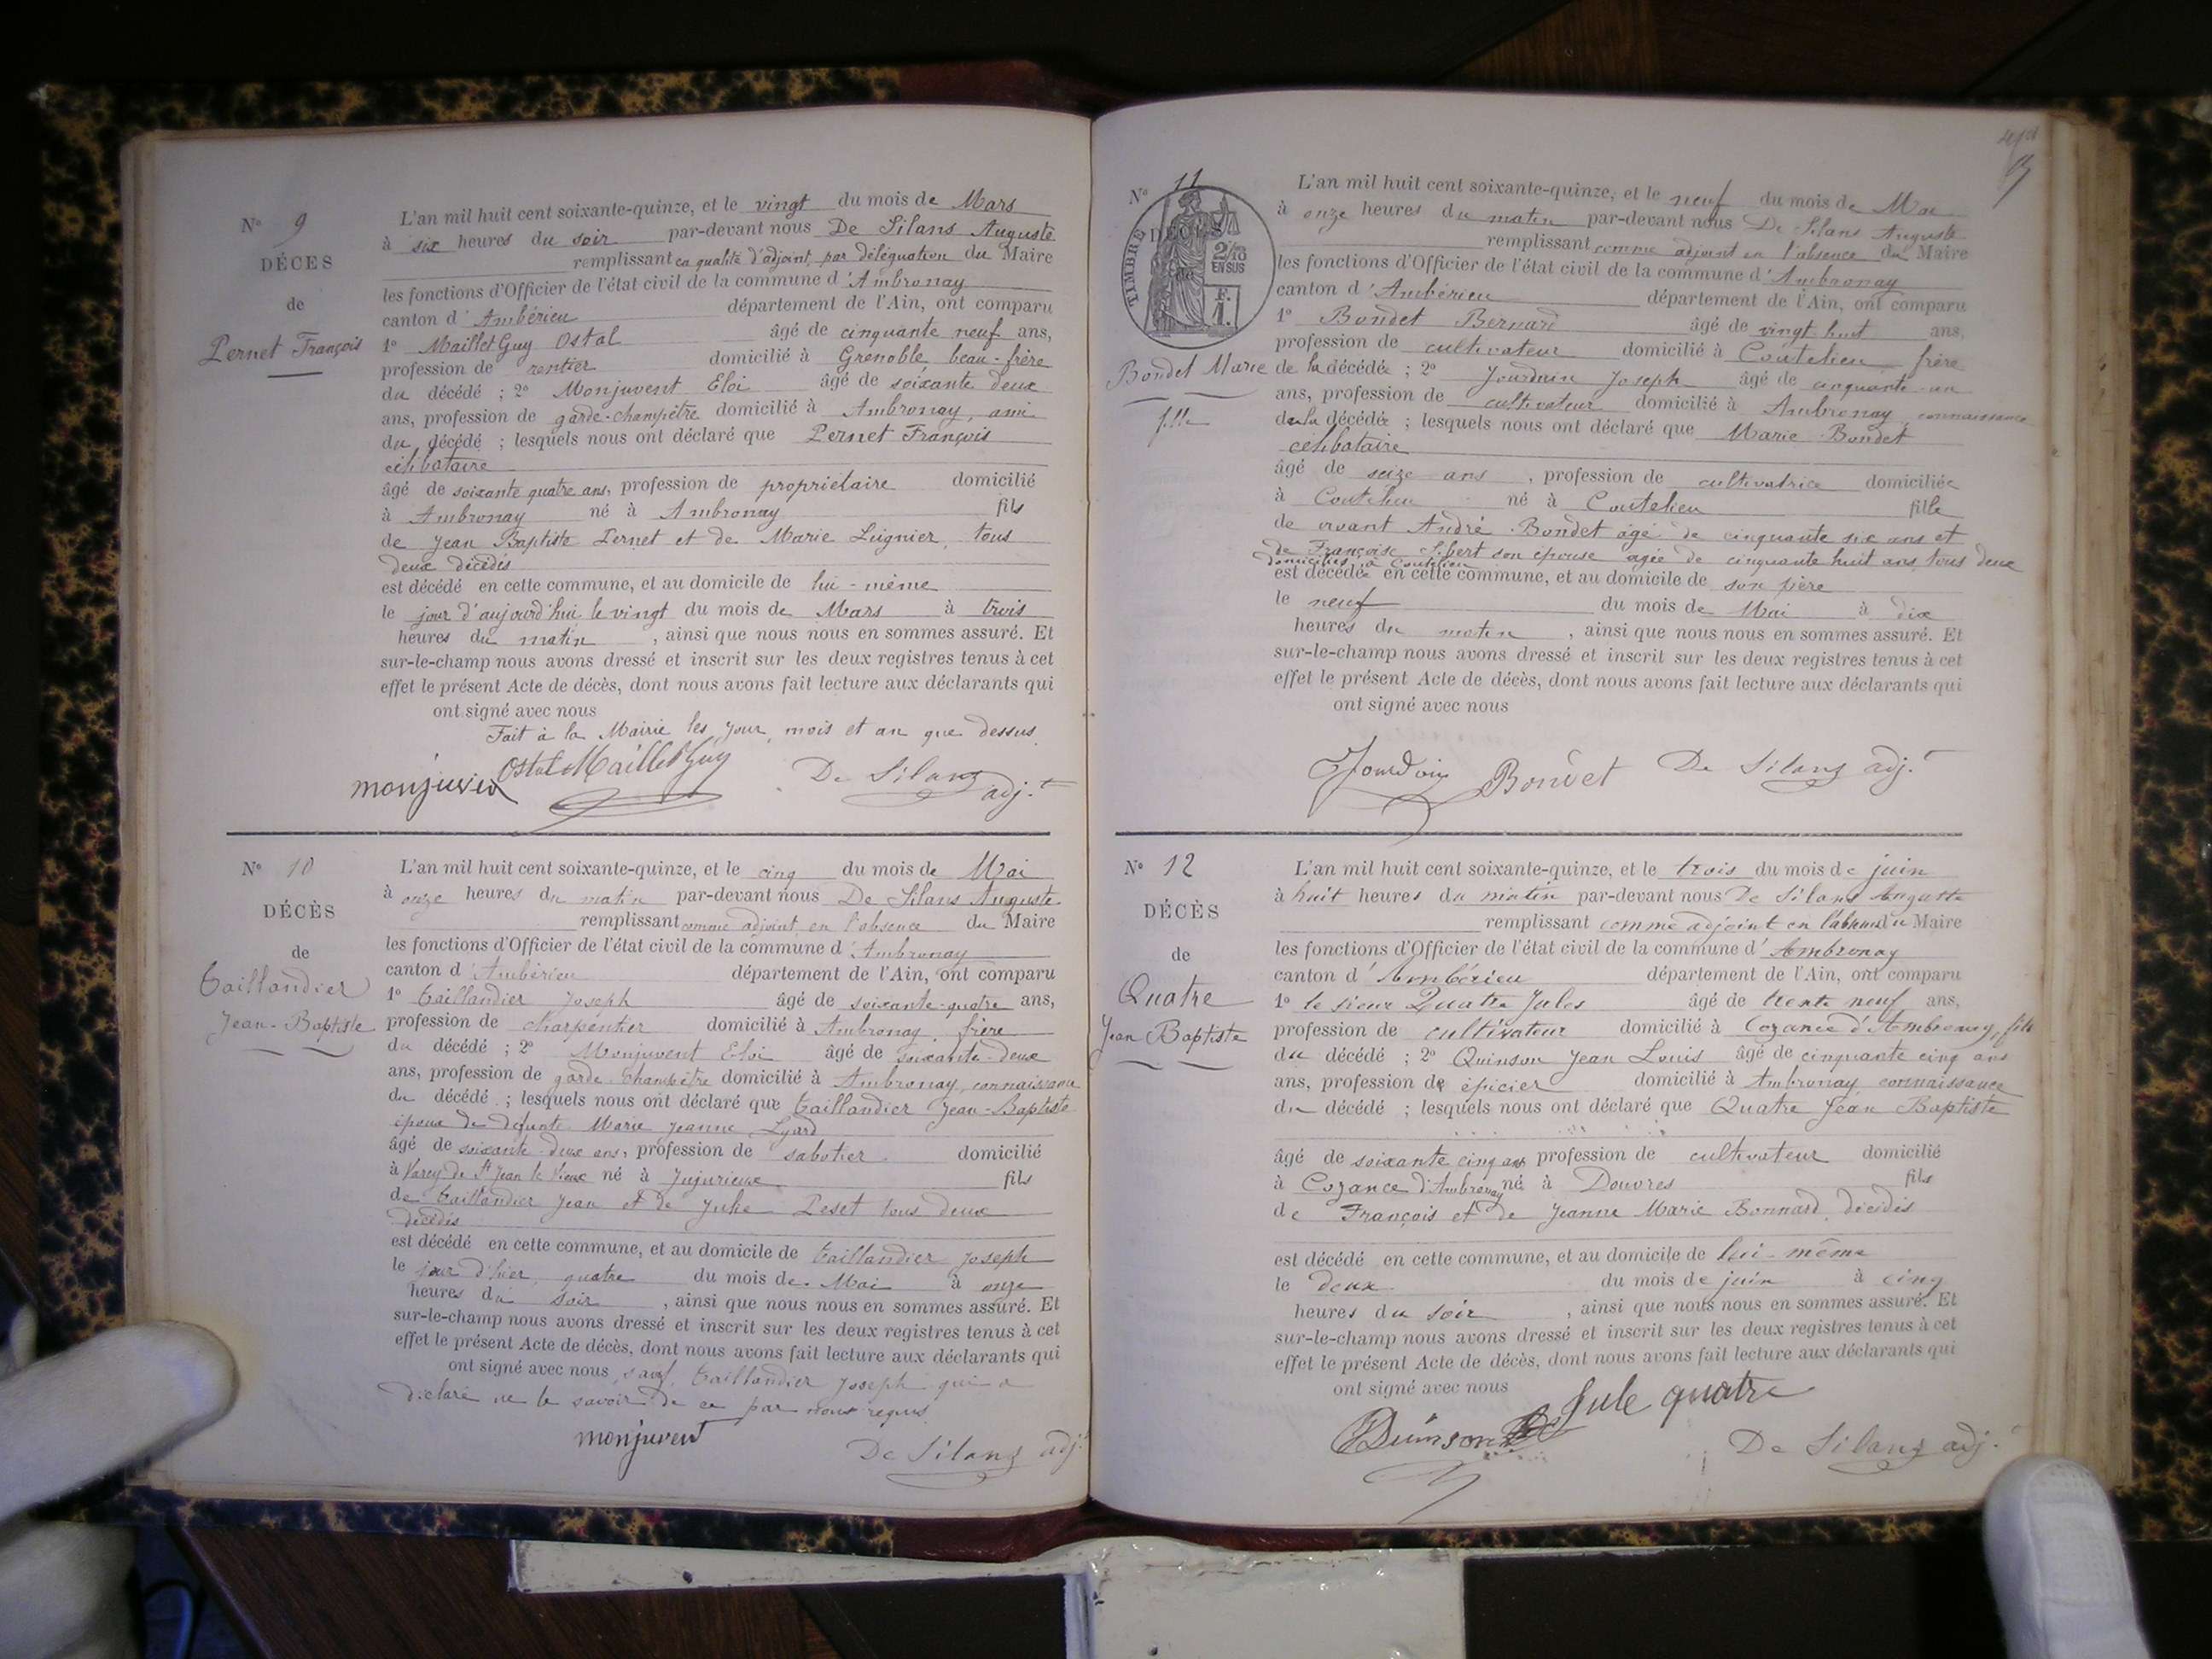 N° 9
DÉCES
de
Pernet François
L'an mil huit cent soixante-quinze, et le vingt du mois de Mars
à six heures du soir par-devant nous De Silans Auguste
remplissant en qualité d'adjoint, par délégation du Maire
les fonctions d'Officier de l'état civil de la commune d'Ambronay
canton d'Ambérieu département de l'Ain, ont comparu
1° Maillet Guy Ostal âgé de cinquante neuf ans,
profession de rentier domicilié à Grenoble, beau-frère
du décédé ; 2° Monjuvent Eloi âgé de soixante deux
ans, profession de garde-champêtre domicilié à Ambronay, ami
du décédé ; lesquels nous ont déclaré que Pernet François
célibataire
âgé de soixante quatre ans, profession de propriétaire domicilié
à Ambronay né à Ambronay fils
de Jean Baptiste Pernet et de Marie Luignier, tous
deux décédés
est décédé en cette commune, et au domicile de lui-même
le jour d'aujourd'hui le vingt du mois de Mars à trois
heures du matin, ainsi que nous nous en sommes assuré. Et
sur-le-champ nous avons dressé et inscrit sur les deux registres tenus à cet
effet le présent Acte de décès, dont nous avons fait lecture aux déclarants qui
ont signé avec nous
Fait à la Mairie les jour, mois et an que dessus
monjuven Ostal Maillet Guy De Silans adj.t
N° 10
DÉCÈS
de
Taillandier
Jean-Baptiste
L'an mil huit cent soixante-quinze, et le cinq du mois de Mai
à onze heures du matin par-devant nous De Silans Auguste
remplissant comme adjoint en l'absence du Maire
les fonctions d'Officier de l'état civil de la commune d'Ambronay
canton d'Ambérieu département de l'Ain, ont comparu
1° Taillandier Joseph âgé de soixante-quatre ans,
profession de charpentier domicilié à Ambronay, frère
du décédé ; 2° Monjuvent Eloi âgé de soixante-deux
ans, profession de garde-champêtre domicilié à Ambronay, connaissance
du décédé ; lesquels nous ont déclaré que Taillandier Jean-Baptiste
époux de défunte Marie Jeanne Lyard
âgé de soixante-deux ans, profession de sabotier domicilié
à Varey de St Jean le Vieux né à Jujurieux fils
de Taillandier Jean et de Julie Peset tous deux
décédés
est décédé en cette commune, et au domicile de Taillandier Joseph
le jour d'hier, quatre du mois de Mai à onze
heures du soir, ainsi que nous nous en sommes assuré. Et
sur-le-champ nous avons dressé et inscrit sur les deux registres tenus à cet
effet le présent Acte de décès, dont nous avons fait lecture aux déclarants qui
ont signé avec nous, sauf Taillandier Joseph qui a
déclaré ne le savoir de ce par nous requis
monjuvent De Silans adj.t
N° 11
DÉCÈS
de
TIMBRE
2/10
EN SUS
F.
1.
Bondet Marie
fille
L'an mil huit cent soixante-quinze, et le neuf du mois de Mai
à onze heures du matin par-devant nous De Silans Auguste
remplissant comme adjoint en l'absence du Maire
les fonctions d'Officier de l'état civil de la commune d'Ambronay
canton d'Ambérieu département de l'Ain, ont comparu
1° Bondet Bernard âgé de vingt huit ans,
profession de cultivateur domicilié à Coutelieu frère
de la décédée ; 2° Jourdain Joseph âgé de cinquante-un
ans, profession de cultivateur domicilié à Ambronay, connaissance
de la décédée ; lesquels nous ont déclaré que Marie Bondet
célibataire
âgé de seize ans, profession de cultivatrice domiciliée
à Coutelieu né à Coutelieu fille
de vivant André Bondet âgé de cinquante six ans et
de Françoise Sibert son épouse âgée de cinquante huit ans, tous deux
domiciliés à Coutelieu
est décédée en cette commune, et au domicile de son père
le neuf du mois de Mai à dix
heures du matin, ainsi que nous nous en sommes assuré. Et
sur-le-champ nous avons dressé et inscrit sur les deux registres tenus à cet
effet le présent Acte de décès, dont nous avons fait lecture aux déclarants qui
ont signé avec nous
Jourdain Bondet De Silans adj.t
N° 12
DÉCÈS
de
Quatre
Jean Baptiste
L'an mil huit cent soixante-quinze, et le trois du mois de juin
à huit heures du matin par-devant nous De Silans Auguste
remplissant comme adjoint en l'absence du Maire
les fonctions d'Officier de l'état civil de la commune d'Ambronay
canton d'Ambérieu département de l'Ain, ont comparu
1° le sieur Quatre Jules âgé de trente neuf ans,
profession de cultivateur domicilié à Cozance d'Ambronay, fils
du décédé ; 2° Quinson Jean Louis âgé de cinquante cinq ans
ans, profession de épicier domicilié à Ambronay connaissance
du décédé ; lesquels nous ont déclaré que Quatre Jean Baptiste
âgé de soixante cinq ans profession de cultivateur domicilié
à Cozance d'Ambronay né à Douvres fils
de François et de Jeanne Marie Bonnard, décédés
est décédé en cette commune, et au domicile de lui-même
le deux du mois de juin à cinq
heures du soir, ainsi que nous nous en sommes assuré. Et
sur-le-champ nous avons dressé et inscrit sur les deux registres tenus à cet
effet le présent Acte de décès, dont nous avons fait lecture aux déclarants qui
ont signé avec nous
Jule quatre
Quinson De Silans adj.t